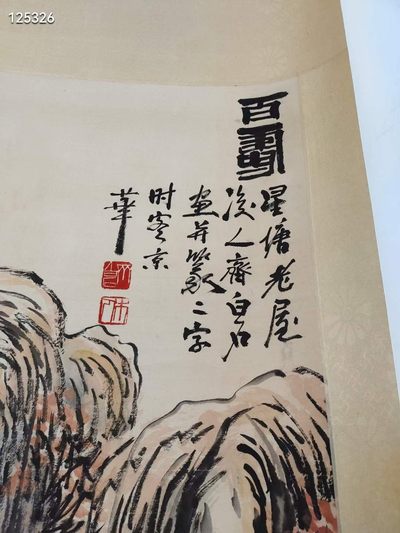 125326
百
星塘老屋
後人齊白石
畫并篆二字
时客京
華